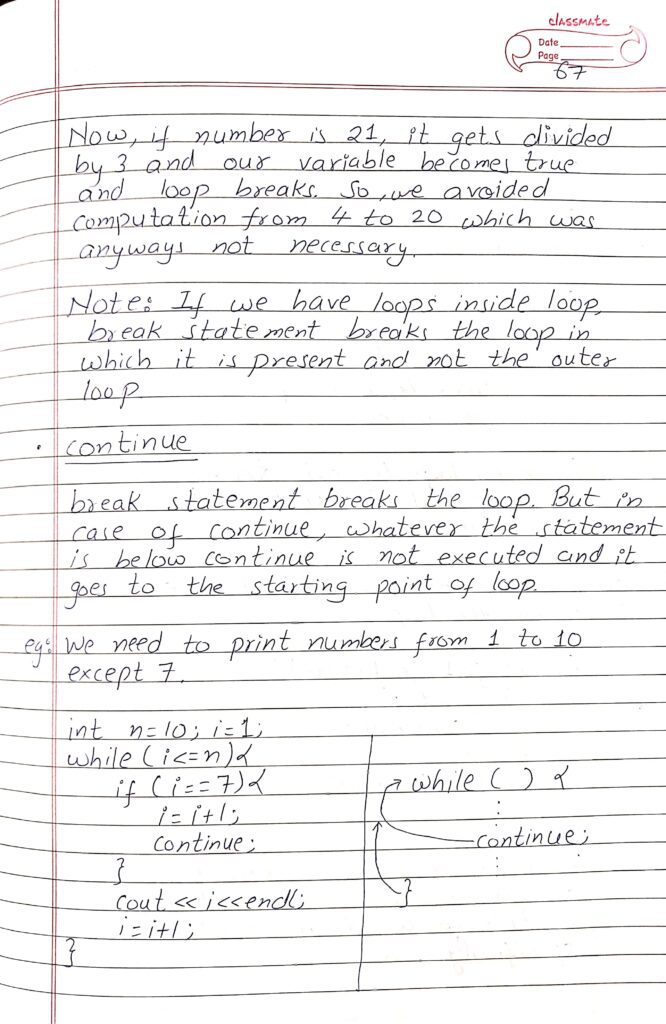 classmate
Date
Page
67
Now, if number is 21, it gets divided
by 3 and our variable becomes true
and loop breaks. So, we avoided
computation from 4 to 20 which was
anyways not necessary.
Note: If we have loops inside loop,
break statement breaks the loop in
which it is present and not the outer
loop.
• continue
break statement breaks the loop. But in
case of continue, whatever the statement
is below continue is not executed and it
goes to the starting point of loop.
eg: We need to print numbers from 1 to 10
except 7.
int n=10; i=1;
while (i<=n){
if (i==7){
i=i+1;
continue;
}
cout << i<<endl;
i=i+1;
}
while ( ) {
:
continue;
:
}